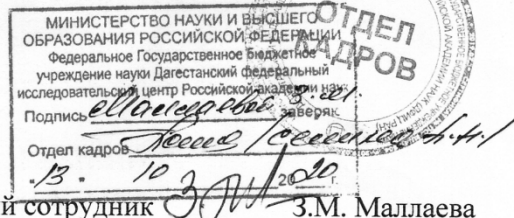 МИНИСТЕРСТВО НАУКИ И ВЫСШЕГО
ОБРАЗОВАНИЯ РОССИЙСКОЙ ФЕДЕРАЦИИ
Федеральное Государственное бюджетное
учреждение науки Дагестанский федеральный
исследовательский центр Российской академии наук
Подпись Маллаевой З.М. заверяю
Отдел кадров
13. 10 2020
ОТДЕЛ
КАДРОВ
й сотрудник З.М. Маллаева